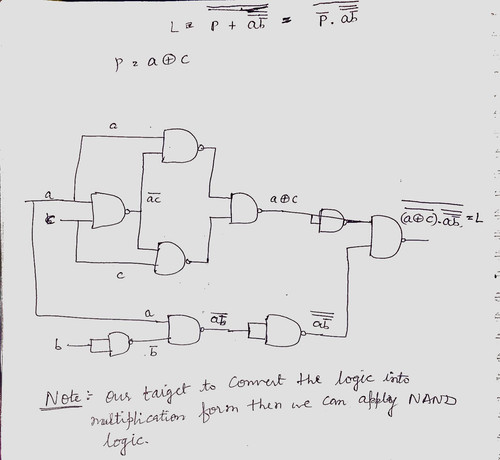 L = \overline{\overline{P + \overline{\overline{a\overline{b}}}}} = \overline{\overline{P} . \overline{\overline{\overline{a\overline{b}}}}}
P = a ⊕ c
a
a
\overline{ac}
a ⊕ c
\overline{\overline{(a⊕c)} . \overline{\overline{\overline{a\overline{b}}}}} = L
c
a
\overline{a\overline{b}}
\overline{\overline{a\overline{b}}}
b
\overline{b}
Note :- Our taiget to convert the logic into
multiplication form then we can apply NAND
logic.